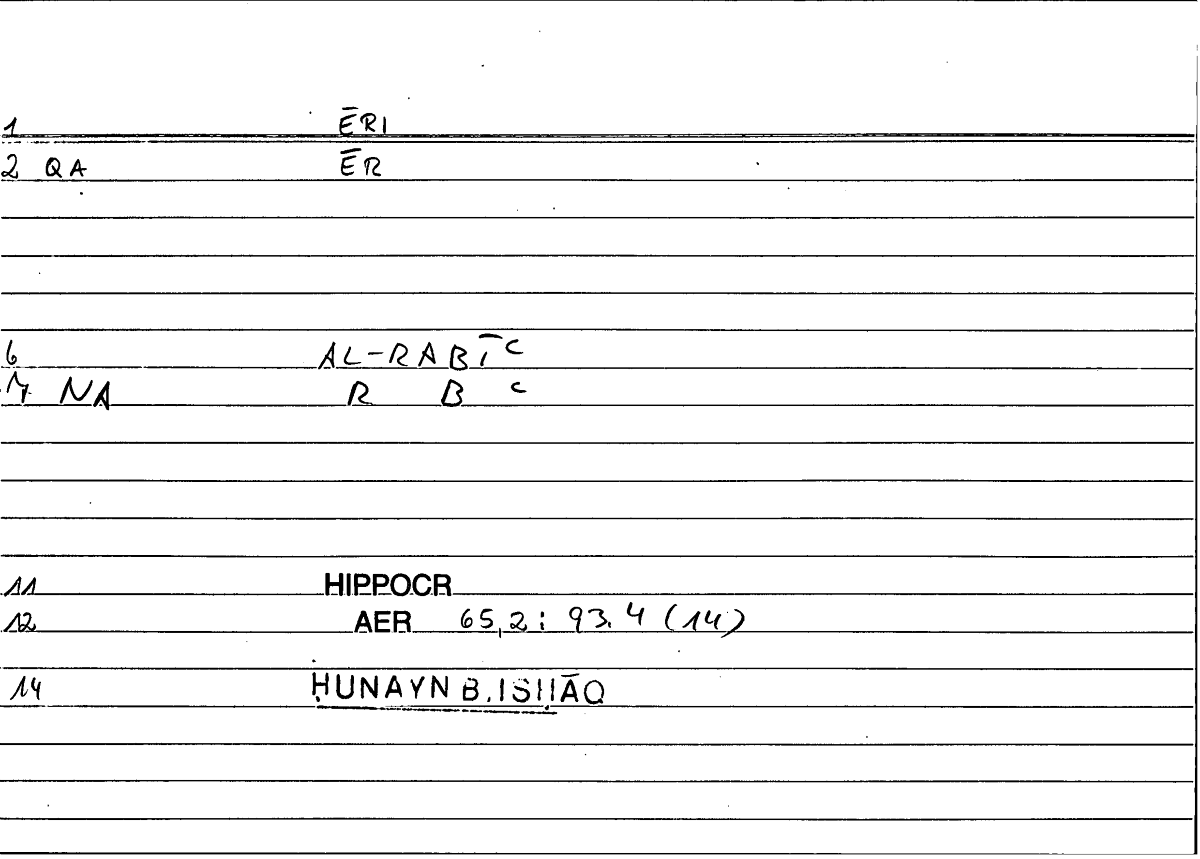 1 ĒRI
2 QA ĒR
6 AL-RABĪʿ
7 NA R B ʿ
11 HIPPOCR
12 AER 65,2 : 93.4 (14)
14 ḤUNAYN B. ISḤĀQ